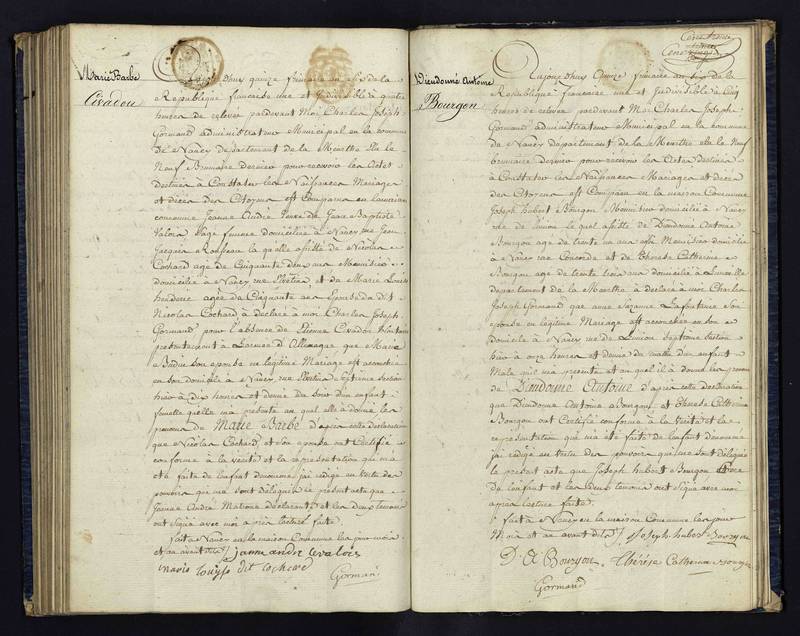 Marie Barbe
Civadou
quinze frimaire an six de la
République française une et Indivisible à quatre
heures de relevée pardevant Moi Charles Joseph
Gormand administrateur Municipal en la commune
de Nancy Departement de la Meurthe élu le
Neuf Brumaire dernier pour recevoir les Actes
destinés à Constater les Naissances Mariages
et décès des Citoyens est Comparu en la maison
commune Jeanne André veuve de Jean Baptiste
Valois Sage femme domiciliée à Nancy rue Jean
Jacques Rousseau laquelle assistée de Nicolas
Cochard age de Cinquante deux ans Menuisier
domicilié à Nancy rue et de Marie Louise
agée de Cinquante ans Epouse du dit
Nicolas Cochard à déclaré à moi Charles Joseph
Gormand pour l'absence de Etienne Civadou
présentement à L'armée d'Allemagne que Marie
son épouse en légitime Mariage est accouchée
en son domicile à Nancy rue Septième Section
hier à dix heures et demie du soir d'un enfant
femelle qu'elle m'a présenté au quel elle à donné les
prenoms de Marie Barbe d'après cette déclaration
que Nicolas Cochard et son épouse ont Certifié
conforme à la vérité et la représentation qui m'a
été faite de l'enfant denommé j'ai rédigé en vertu des
pouvoirs qui me sont délégués le présent acte que
Jeanne André Matrone déclarante et les deux temoins
ont signé avec moi après lecture faite.
fait à Nancy en la maison Commune les jour mois
et an avant dits janne andre valois
marie louise dit cochard
Gormand
Dieudonné Antoine
Bourgon
Aujourd'huy Quinze frimaire an six de la
République française une et Indivisible à Cinq
heures de relevée pardevant Moi Charles Joseph
Gormand administrateur Municipal en la commune
de Nancy département de la Meurthe élu le Neuf
brumaire dernier pour recevoir les Actes destinés
à Constater les Naissances Mariages et décès
des Citoyens est Comparu en la maison Commune
Joseph hubert Bourgon Menuisier domicilié à Nancy
rue de Simon lequel assisté de Dieudonné Antoine
Bourgon age de trente un ans aussi Menuisier domicilié
à Nancy rue Concorde et de Therese Catherine
Bourgon age de trente trois ans domiciliée à Luneville
département de la Meurthe à déclaré à moi Charles
Joseph Gormand que anne Suzanne Lafontaine son
épouse en légitime Mariage est accouchée en son
domicile à Nancy rue de Simon Septième Section
hier à onze heures et demie du matin d'un enfant
Male qui m'a présenté et au quel il à donné les prenoms
de Dieudonné Antoine d'après cette déclaration
que Dieudonné Antoine Bourgon et Therese Catherine
Bourgon ont Certifié conforme à la Vérité et la
représentation qui m'a été faite de l'enfant denommé
j'ai rédigé en vertu des pouvoirs qui me sont délégués
le présent acte que Joseph hubert Bourgon Père
de l'enfant et les deux temoins ont signé avec moi
après lecture faite.
fait à Nancy en la maison Commune les jour
Mois et an avant dits Joseph huber Bourgon
D. A Bourgon Thérèse Catherine Bourgon
Gormand